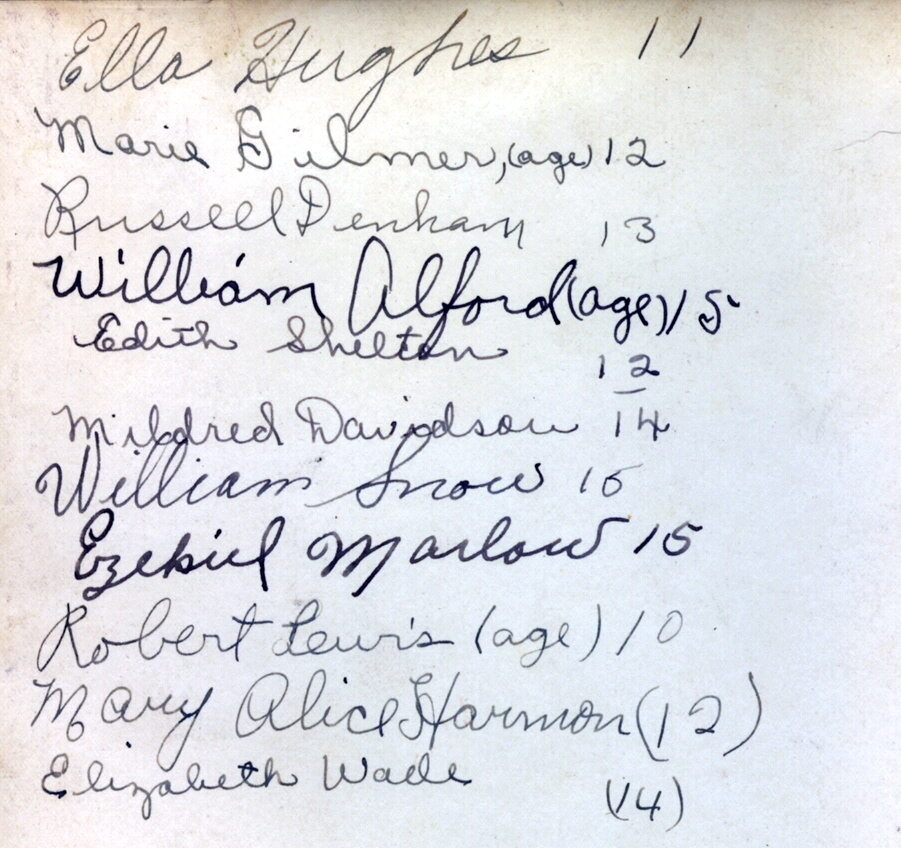 Ella Hughes 11
Marie Gilmer, (age) 12
Russell Denham 13
William Alford (age) 15
Edith Shelton 12
Mildred Davidson 14
William Snow 15
Ezekiel Marlow 15
Robert Lewis (age) 10
Mary Alice Harmon (12)
Elizabeth Wade (14)